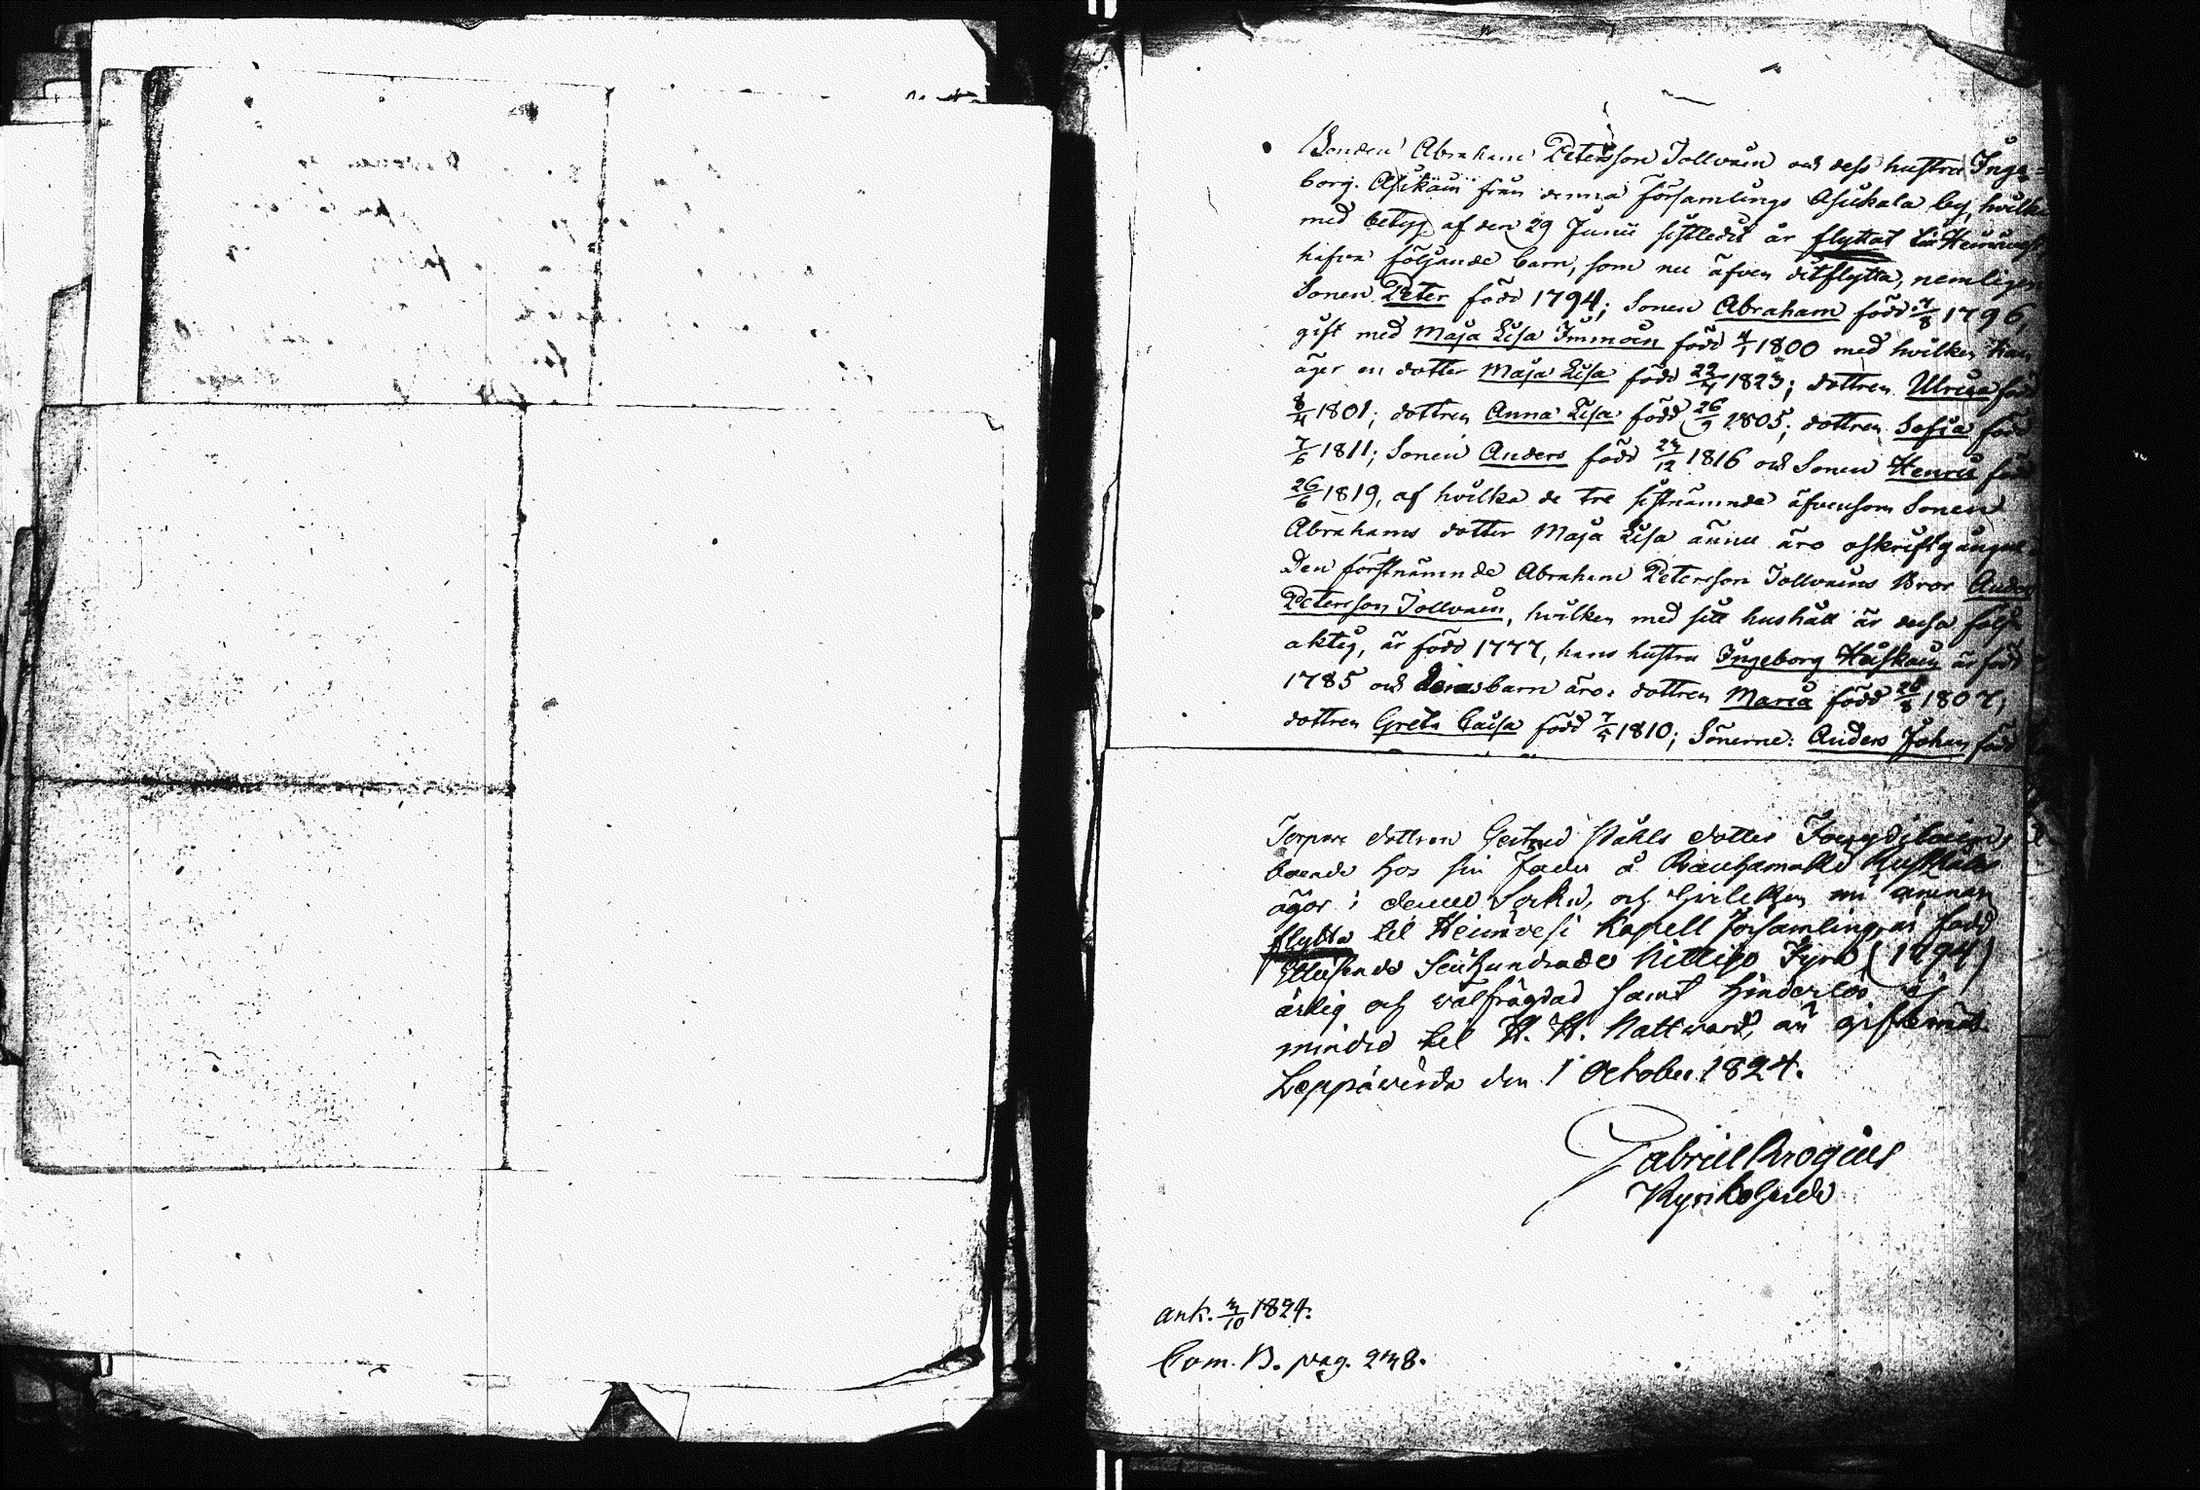 Bonden Abraham Petersson Tollvain och dess hustru Inge=
borg Asikain från denna församlings Asukala by, hvilka
med betyg af den 29 Junii sistledit år flyttat til Heinäves
hafva följande barn, som nu äfven ditflytta, nemligen
Sonen Peter född 1794; Sonen Abraham född 7/8 1796,
gift med Maja Lisa Immoin född 4/1 1800 med hvilken han
äger en dotter Maja Lisa född 1823; dottren Ulrica föd
8/4 1801; dottren Anna Lisa född 26/9 1805; dottren Sofia född
7/6 1811; Sonen Anders född 12 1816 och Sonen Henric född
26/6 1819, af hvilka de tre sistnämnde äfvensom Sonen
Abrahams dotter Maja Lisa ännu äro oskriftgångne
Den förstnämnde Abraham Petersson Tollvains Bror Anders
Petersson Tollvain, hvilken med sitt hushåll är dessa följ
aktig, är född 1777, hans hustru Ingeborg Huskain är född
1785 och deras barn äro: dottren Maria född 1807;
dottren Greta Caisa född 1810; Sönerne: Anders Johan född
Torpare dottren Gertrud Påhls dotter
boende hos sin fader å
ägor i denne Sokn, och hvilken nu ämnar
flytta til Heinävesi Kapell Församling, är född
Ettusende Sjuhundrade Nittijo Fyra (1794)
ärlig och välfrägdad samt hinderlös ej
mindre til H. H. Nattward, än giftermål.
Leppävirda den 1 October 1824.
Gabriel Krogius
Kyrkoherde
ank. 3/10 1824.
Com. B. pag. 238.